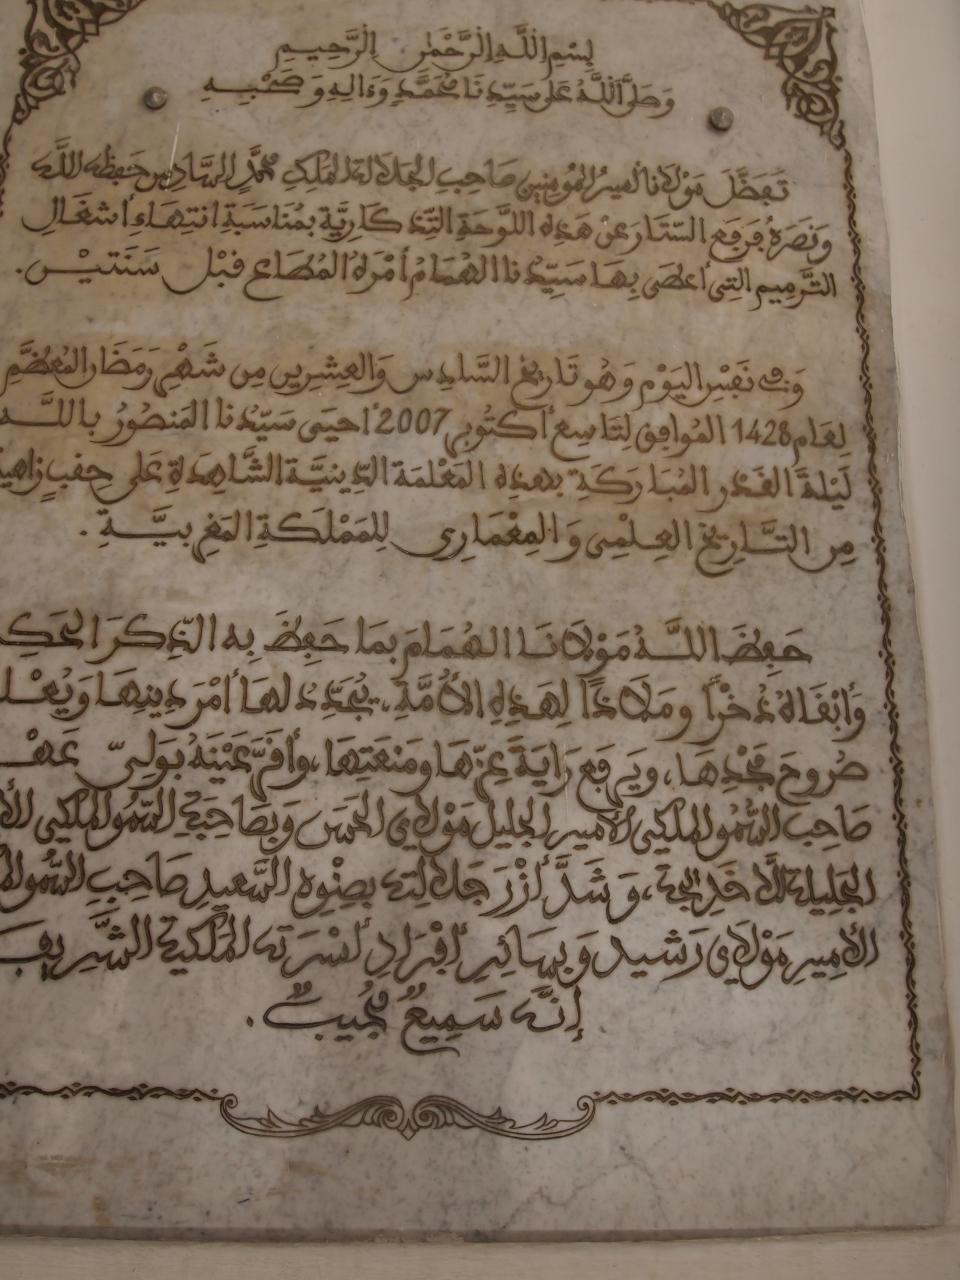 بِسْمِ اللَّهِ الرَّحْمَٰنِ الرَّحِيمِ
وَصَلَّى اللَّهُ عَلَى سَيِّدِنَا مُحَمَّدٍ وَءَالِهِ وَصَحْبِهِ
تَفَضَّلَ مَوْلَانَا أَمِيرُ المُؤمِنِين صَاحِب الجَلَالَة المَلِك مُحَمَّدٌ السَّادِس حَفِظَه اللَّه
وَنَصَرَهُ فَرَفَع السِّتَار عَنْ هَذِهِ اللَّوْحَةِ التِّذْكَارِيَّة بِمُنَاسَبَةِ انتِهَاءِ أشغَالِ
التَّرمِيم التِي أعطَى بِهَا سَيِّدُنَا الهُمَامُ أمْرَهُ المُطَاع قَبْل سَنَتَيْن.
وَفِي نَفْسِ اليَوْم وَهُو تَارِيخ السَّادِس وَالعِشْرِين مِن شَهْر رَمَضَان المُعَظَّمِ
لِعَام 1428 المُوَافِق لِتَاسِع أكتُوبر 2007 أحيَى سَيِّدُنا المَنصُورُ باللَّه
لَيْلةَ القَدْر المُبَارَكَة بهذِهِ المَعْلَمَة الدِّينِيَّة الشَّاهِدَةِ عَلَى حِقَبٍ زَاهِيَة
مِن التَّارِيخ العِلْمِي وَالمِعْمَارِي لِلمَمْلَكَةِ المَغرِبيَّةِ.
حَفِظَ اللَّهُ مَوْلَانَا الهُمَامَ بمَا حَفِظَ بِه الذِّكرَ الحَكِ
وَأَبْقَاهُ ذُخْرًا ومَلَاذًا لِهَذِهِ الأُمَّةِ، يُجَدِّدُ لهَا أمْرَ دِينِهَا وَيُعْل
صُرُوحَ مَجْدِهَا، ويَرفَع رَايَةَ عِزِّهَا ومَنعَتِهَا، وأقَرَّ عَيْنَهُ بوَلِيّ عَهْ
صَاحِب السُّمُو المَلَكِي الأمِير الجَلِيل مَوْلَاي الحَسَن وَبِصَاحِبَةِ السُّمُو المَلَكِي الأ
الجَلِيلة لَلَّا خَدِيجَة، وَشَدَّ أزْرَ جَلَالَتِه بِصِنْوِه السَّعِيدِ صَاحِبِ السُّمُو الم
الأمِيرِ مَوْلَاي رَشِيد وَبِسَائِر أفْرَادِ أُسْرَتِه المَلَكِيَة الشَّرِيف
إنَّه سَمِيعٌ مُجِيبٌ.